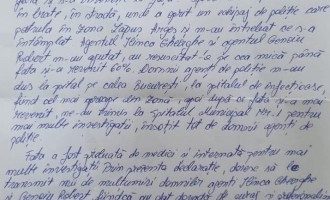 în brațe, în stradă, unde a oprit un echipaj de poliție care
patrula în zona Lapuș Argeș și m-au întrebat ce s-a
întâmplat. Agentul Ilinca Gheorghe și agentul
Robert m-au ajutat, au resuscitat-o pe cea mică până
fata și-a revenit 60%. Domnii agenți de poliție m-au
dus la spital pe calea București, la spitalul de infecțioase,
fiind cel mai aproape din zonă, apoi după ce fata și-a mai
revenit, ne-au trimis la Spitalul Municipal Nr. 1 pentru
mai multe investigații, însoțit tot de domnii agenți de
poliție.
Fata a fost preluată de medici și internată pentru mai
multe investigații. Prin prezenta declarație, doresc să le
transmit mii de mulțumiri domnilor agenți Ilinca Gheorghe
și Robert fiindcă au dat dovadă de curaj și profesionalism